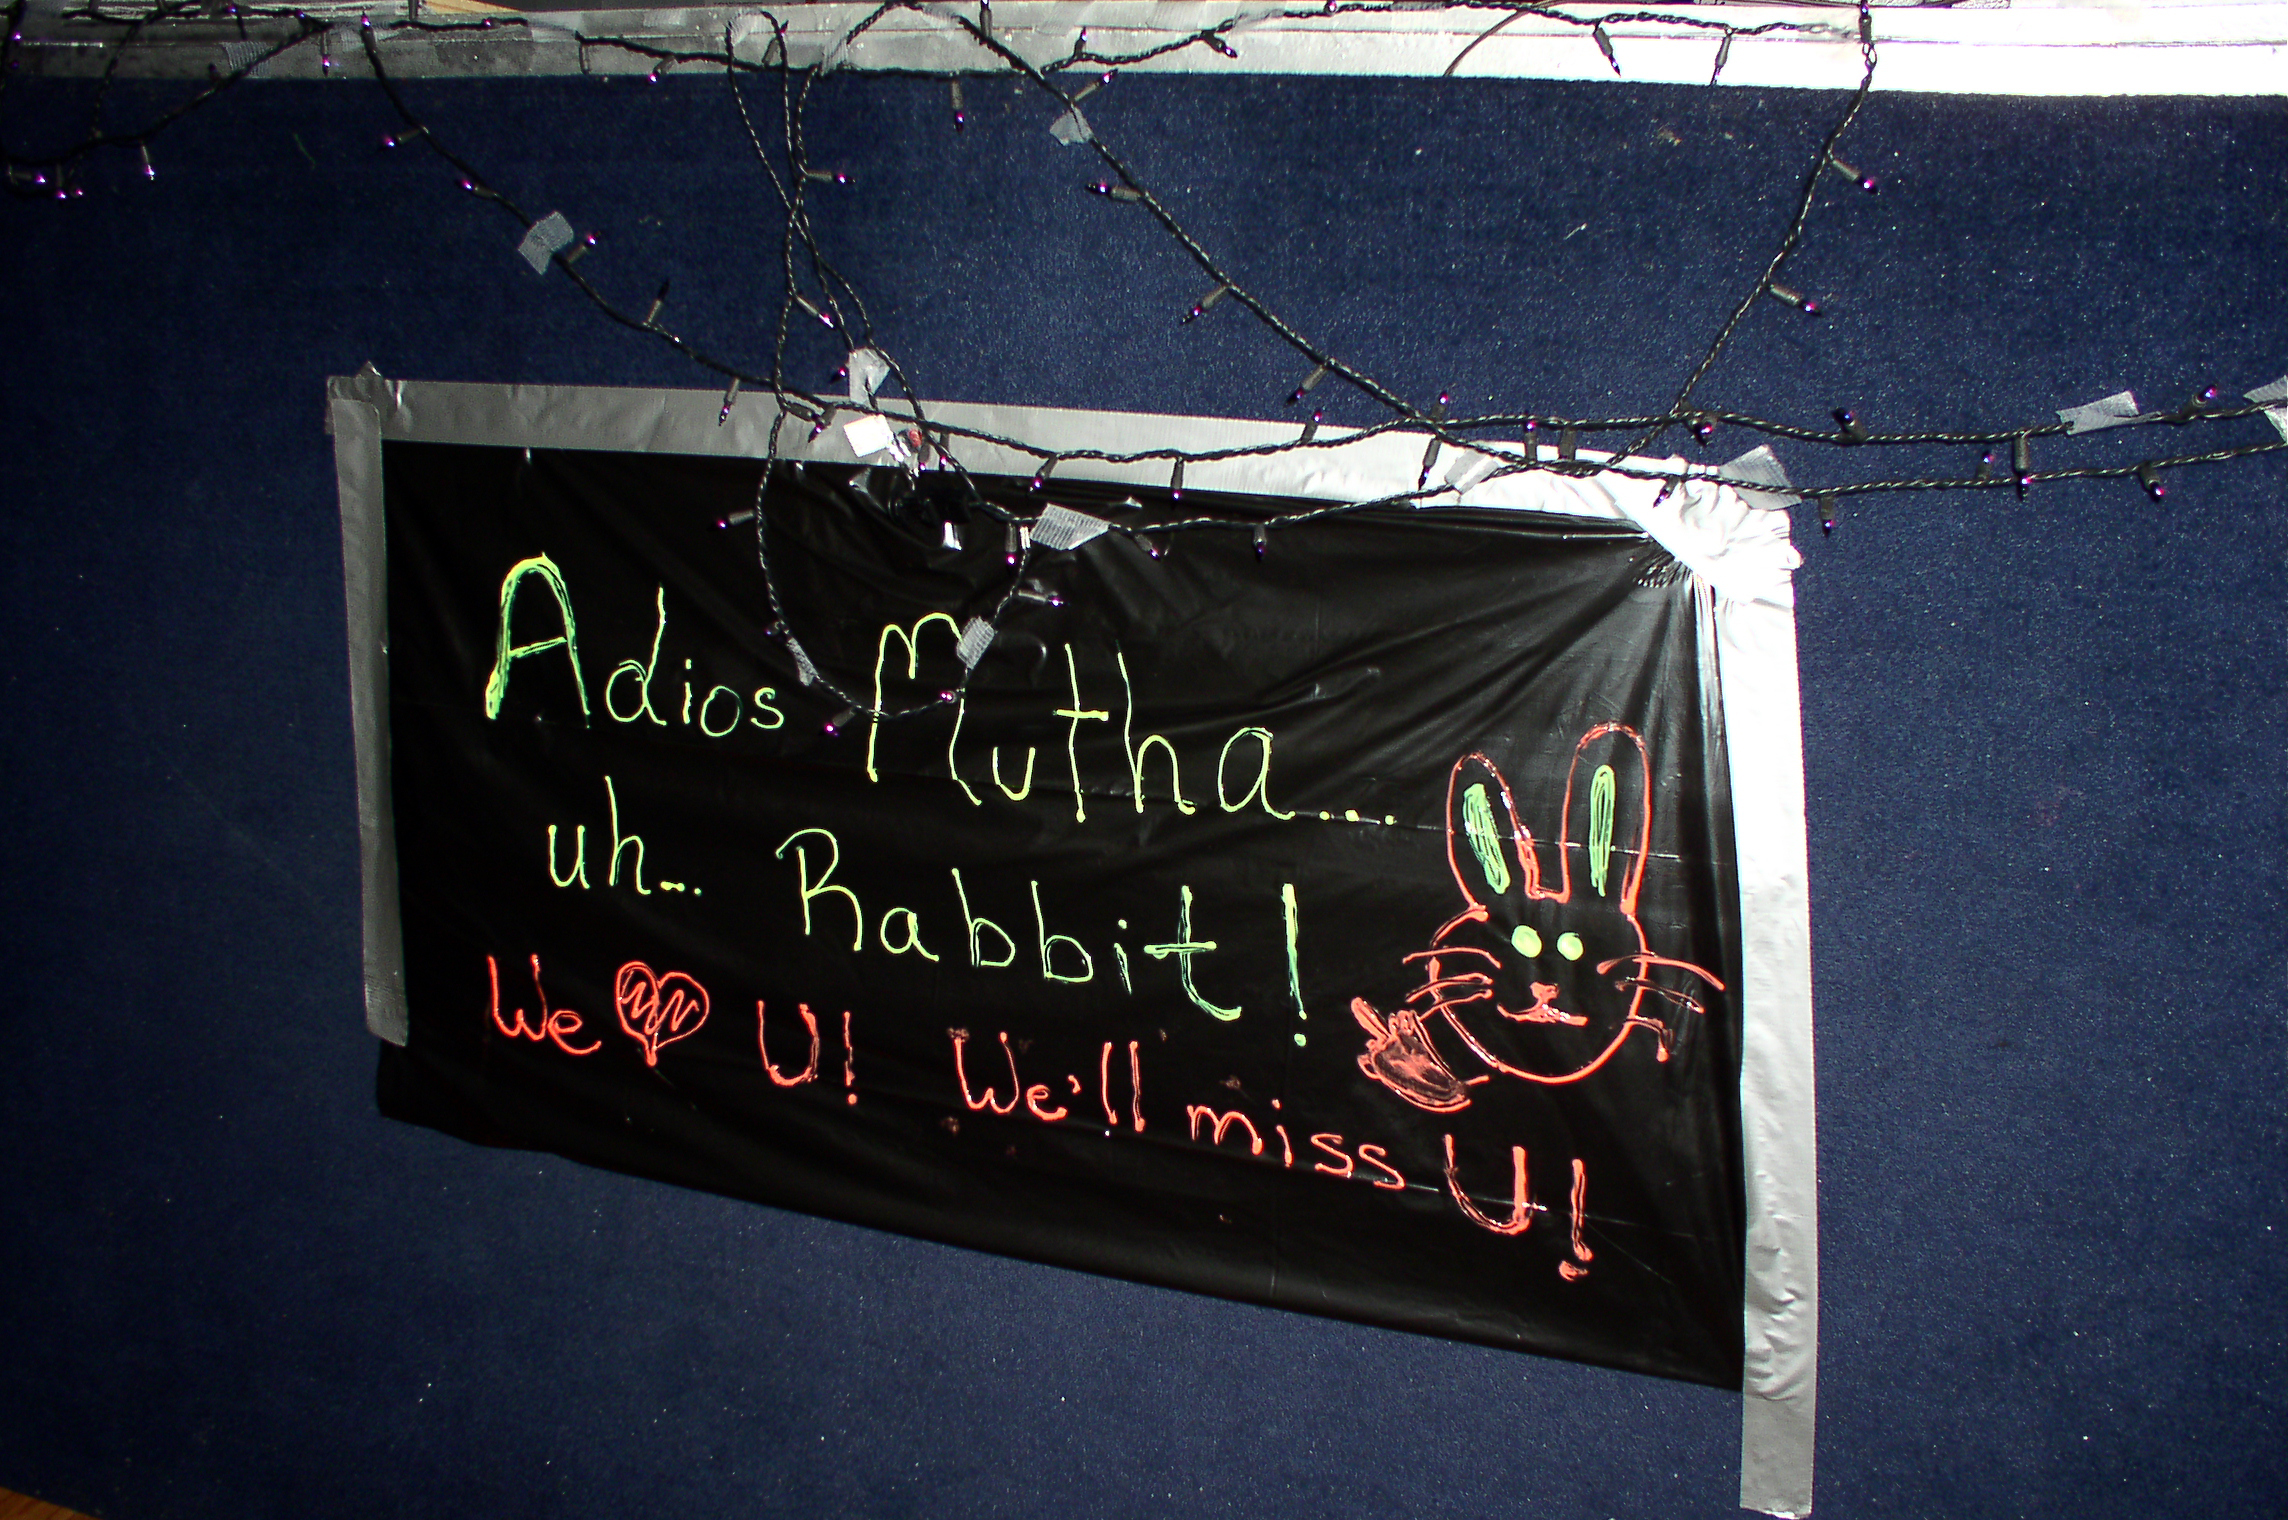 Adios Mutha...
uh... Rabbit!
We ♥ U! We'll miss U!